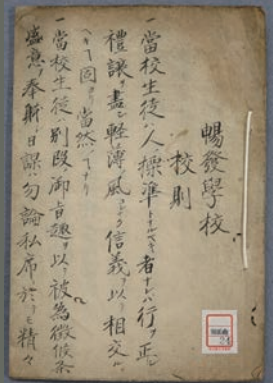 暢發學校
校則
一當校生徒ハ人ノ標準トナルベキ者ナレハ行ヲ正シ
禮譲ヲ盡シ輕薄ノ風ナク信義ヲ以テ相交ル
ヘキハ固ヨリ當然ノコトナリ
一當校生徒ハ別段ノ御旨趣ヲ以テ被為徴候条
盛意ヲ奉躰シ日課ハ勿論私席ニ於テモ精々